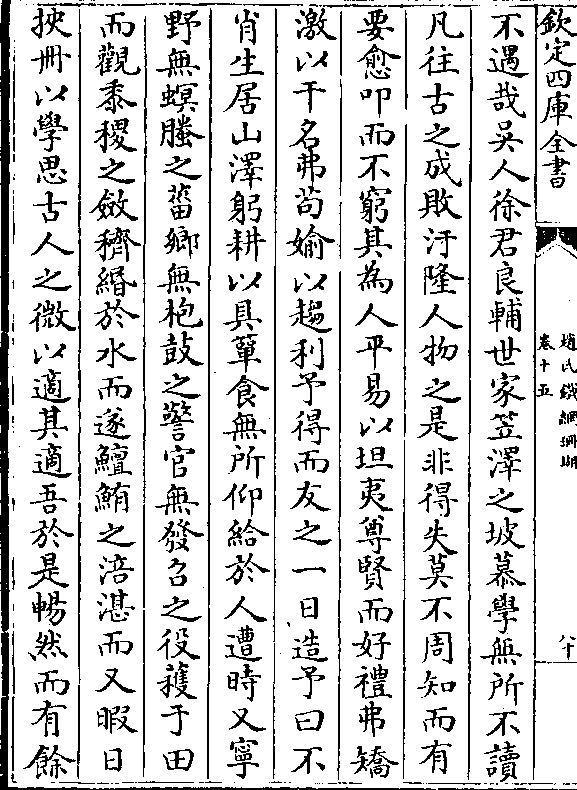 欽定四庫全書
趙氏鐵網珊瑚
卷十五
八十
不遇哉吳人徐君良輔世家笠澤之坡慕學無所不讀
凡往古之成敗汙隆人物之是非得失莫不周知而有
要愈叩而不窮其為人平易以坦夷尊賢而好禮弗矯
激以干名弗苟媮以趨利予得而友之一日造予曰不
肖生居山澤躬耕以具簞食無所仰給於人遭時又寧
野無螟螣之菑鄉無枹鼓之警官無發召之役穫于田
而觀黍稷之斂穧緡於水而遂鱣鮪之涪湛而又暇日
挾冊以學思古人之微以適其適吾於是暢然而有餘